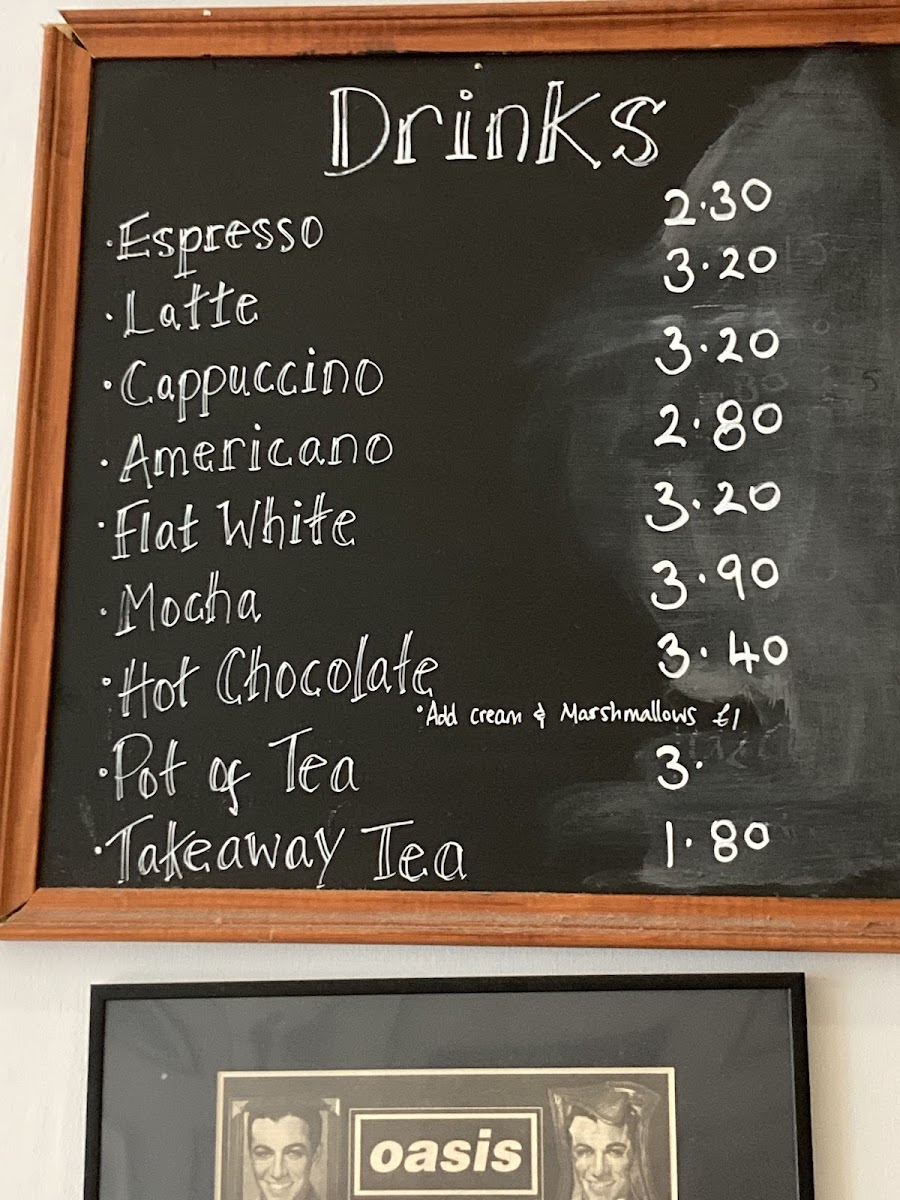 Drinks
·Espresso 2.30
·Latte 3.20
·Cappuccino 3.20
·Americano 2.80
·Flat White 3.20
·Mocha 3.90
·Hot Chocolate 3.40
·Add cream & Marshmallows £1
·Pot of Tea 3.
·Takeaway Tea 1.80
oasis